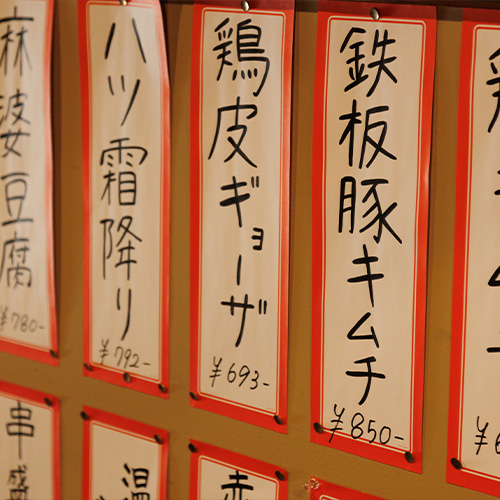 麻婆豆腐
¥780-
ハツ霜降り
¥792-
鶏皮ギョーザ
¥693-
鉄板豚キムチ
¥850-
串盛
温
赤